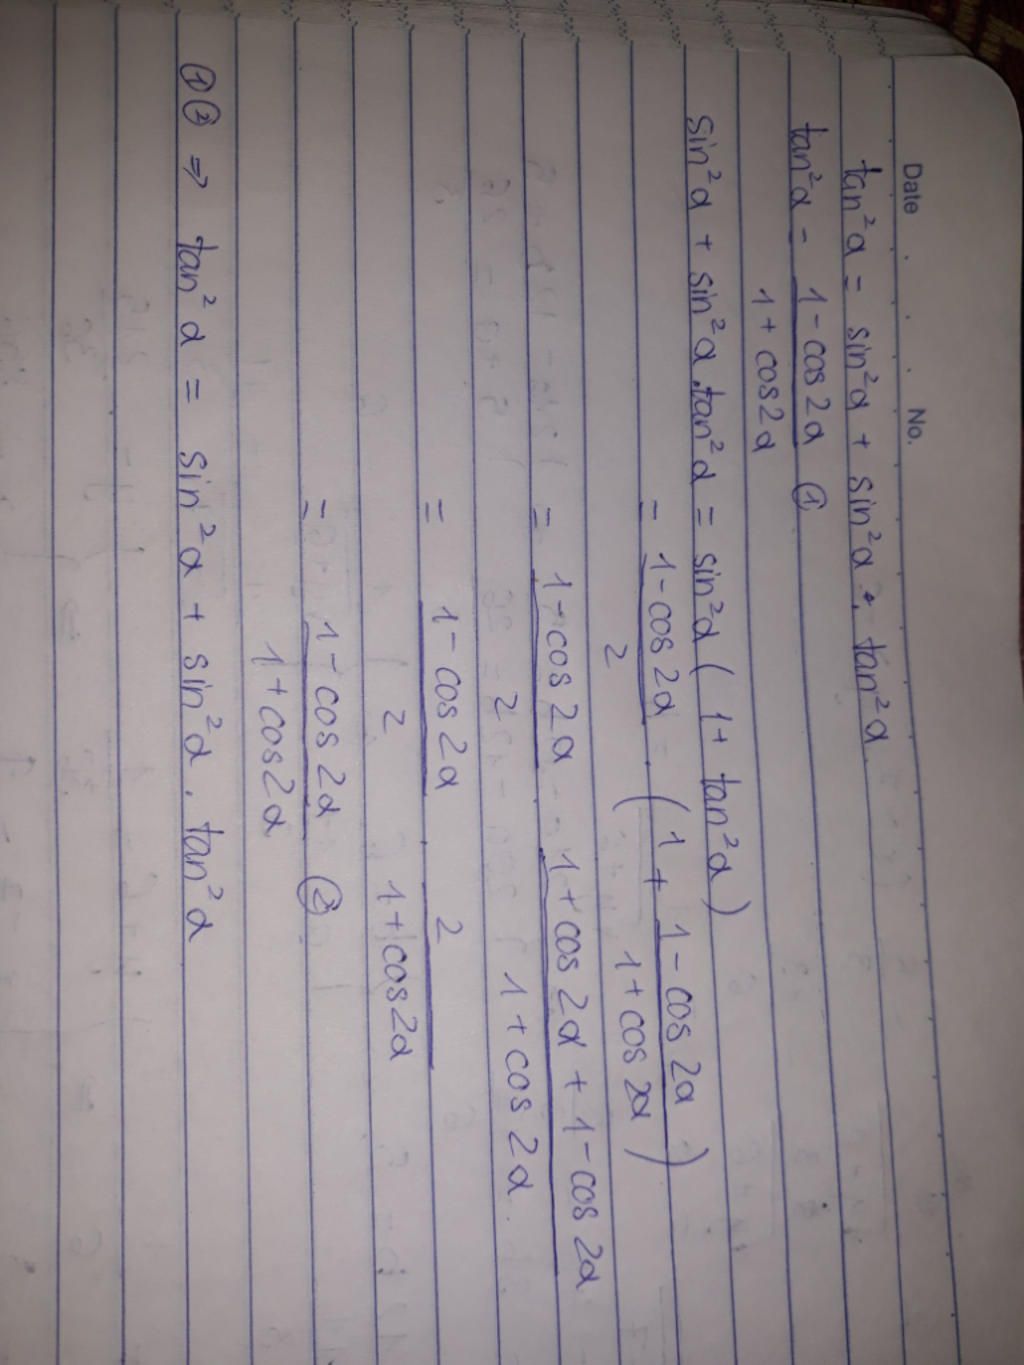 Date . . . No.
tan²α = sin²α + sin²α . tan²α
tan²α - 1 - cos2α ①
1 + cos2α
sin²α + sin²α . tan²α = sin²α ( 1 + tan²α )
= 1 - cos2α ( 1 + 1 - cos2α )
2 1 + cos2α
= 1 - cos2α 1 + cos2α + 1 - cos2α
2 1 + cos2α
= 1 - cos2α 2
2 1 + cos2α
= 1 - cos2α ②
1 + cos2α
①② ⇒ tan²α = sin²α + sin²α . tan²α